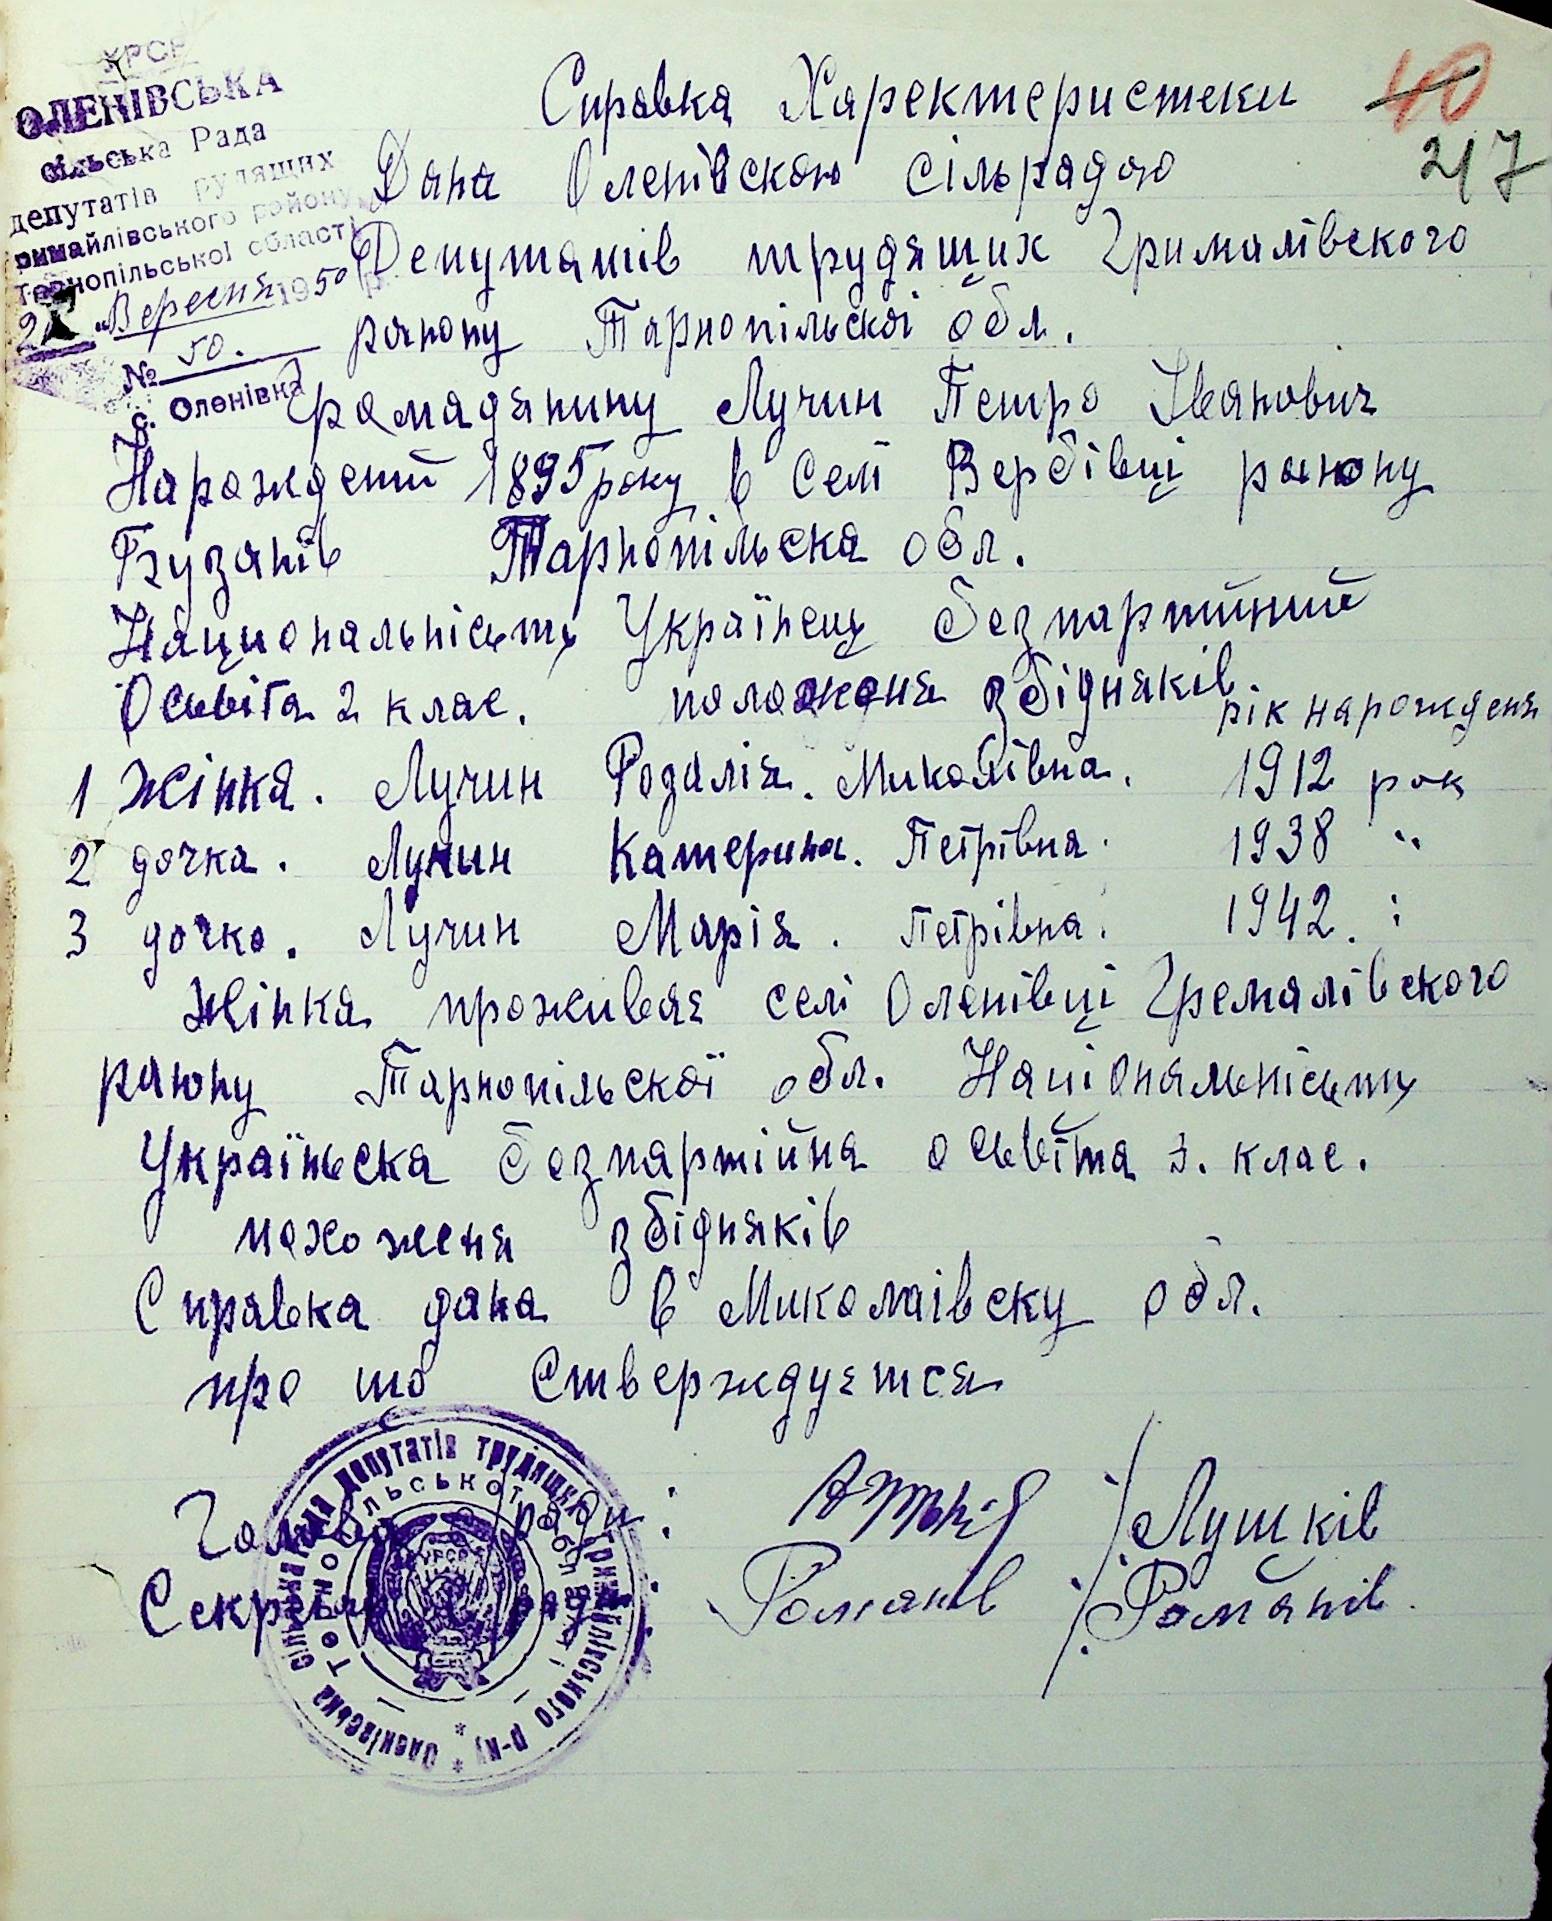 УРСР
ОЛЕНІВСЬКА
сільська Рада
депутатів рудящих
римайлівського району
Тернопільської області
Вересня 1950 р.
№ 50.
с. Оленівка
40
217
Справка Характеристеки
Дана Оленівскою сільрадою
Депутатів трудящих Грималівского
раиону Тарнопільскоі обл.
Громадянину Лучин Петро Іванович
Нарождений 1895 року в Селі Вербівці раиону
Бузанів Тарнопільска обл.
Национальнісьть Українець безпартийний
Осьвіта 2 клас. положеня збідняків.
рік нарожденя
1 Жінка. Лучин Розалія. Миколівна. 1912 рок
2 дочка. Лучин Катерина. Петрівна. 1938 "
3 дочка. Лучин Марія. Петрівна. 1942. "
Жінка проживає селі Оленівці Гремалівского
раиону Тарнопільскої обл. Національнісьть
Україньска безпартійна осьвіта 3. клас.
положеня збідняків
Справка дана в Миколаівску обл.
про що Стверждуєтся
Голова с/ради: / Лушків
Секретар с/ради: Романів / Романів.
Оленівська сільська Рада депутатів трудящих Гримайлівського р-ну *
Тернопільської області
УРСР